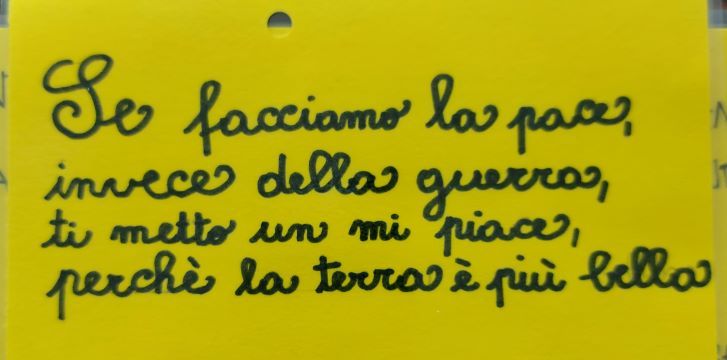 Se facciamo la pace,
invece della guerra,
ti metto un mi piace,
perchè la terra è più bella